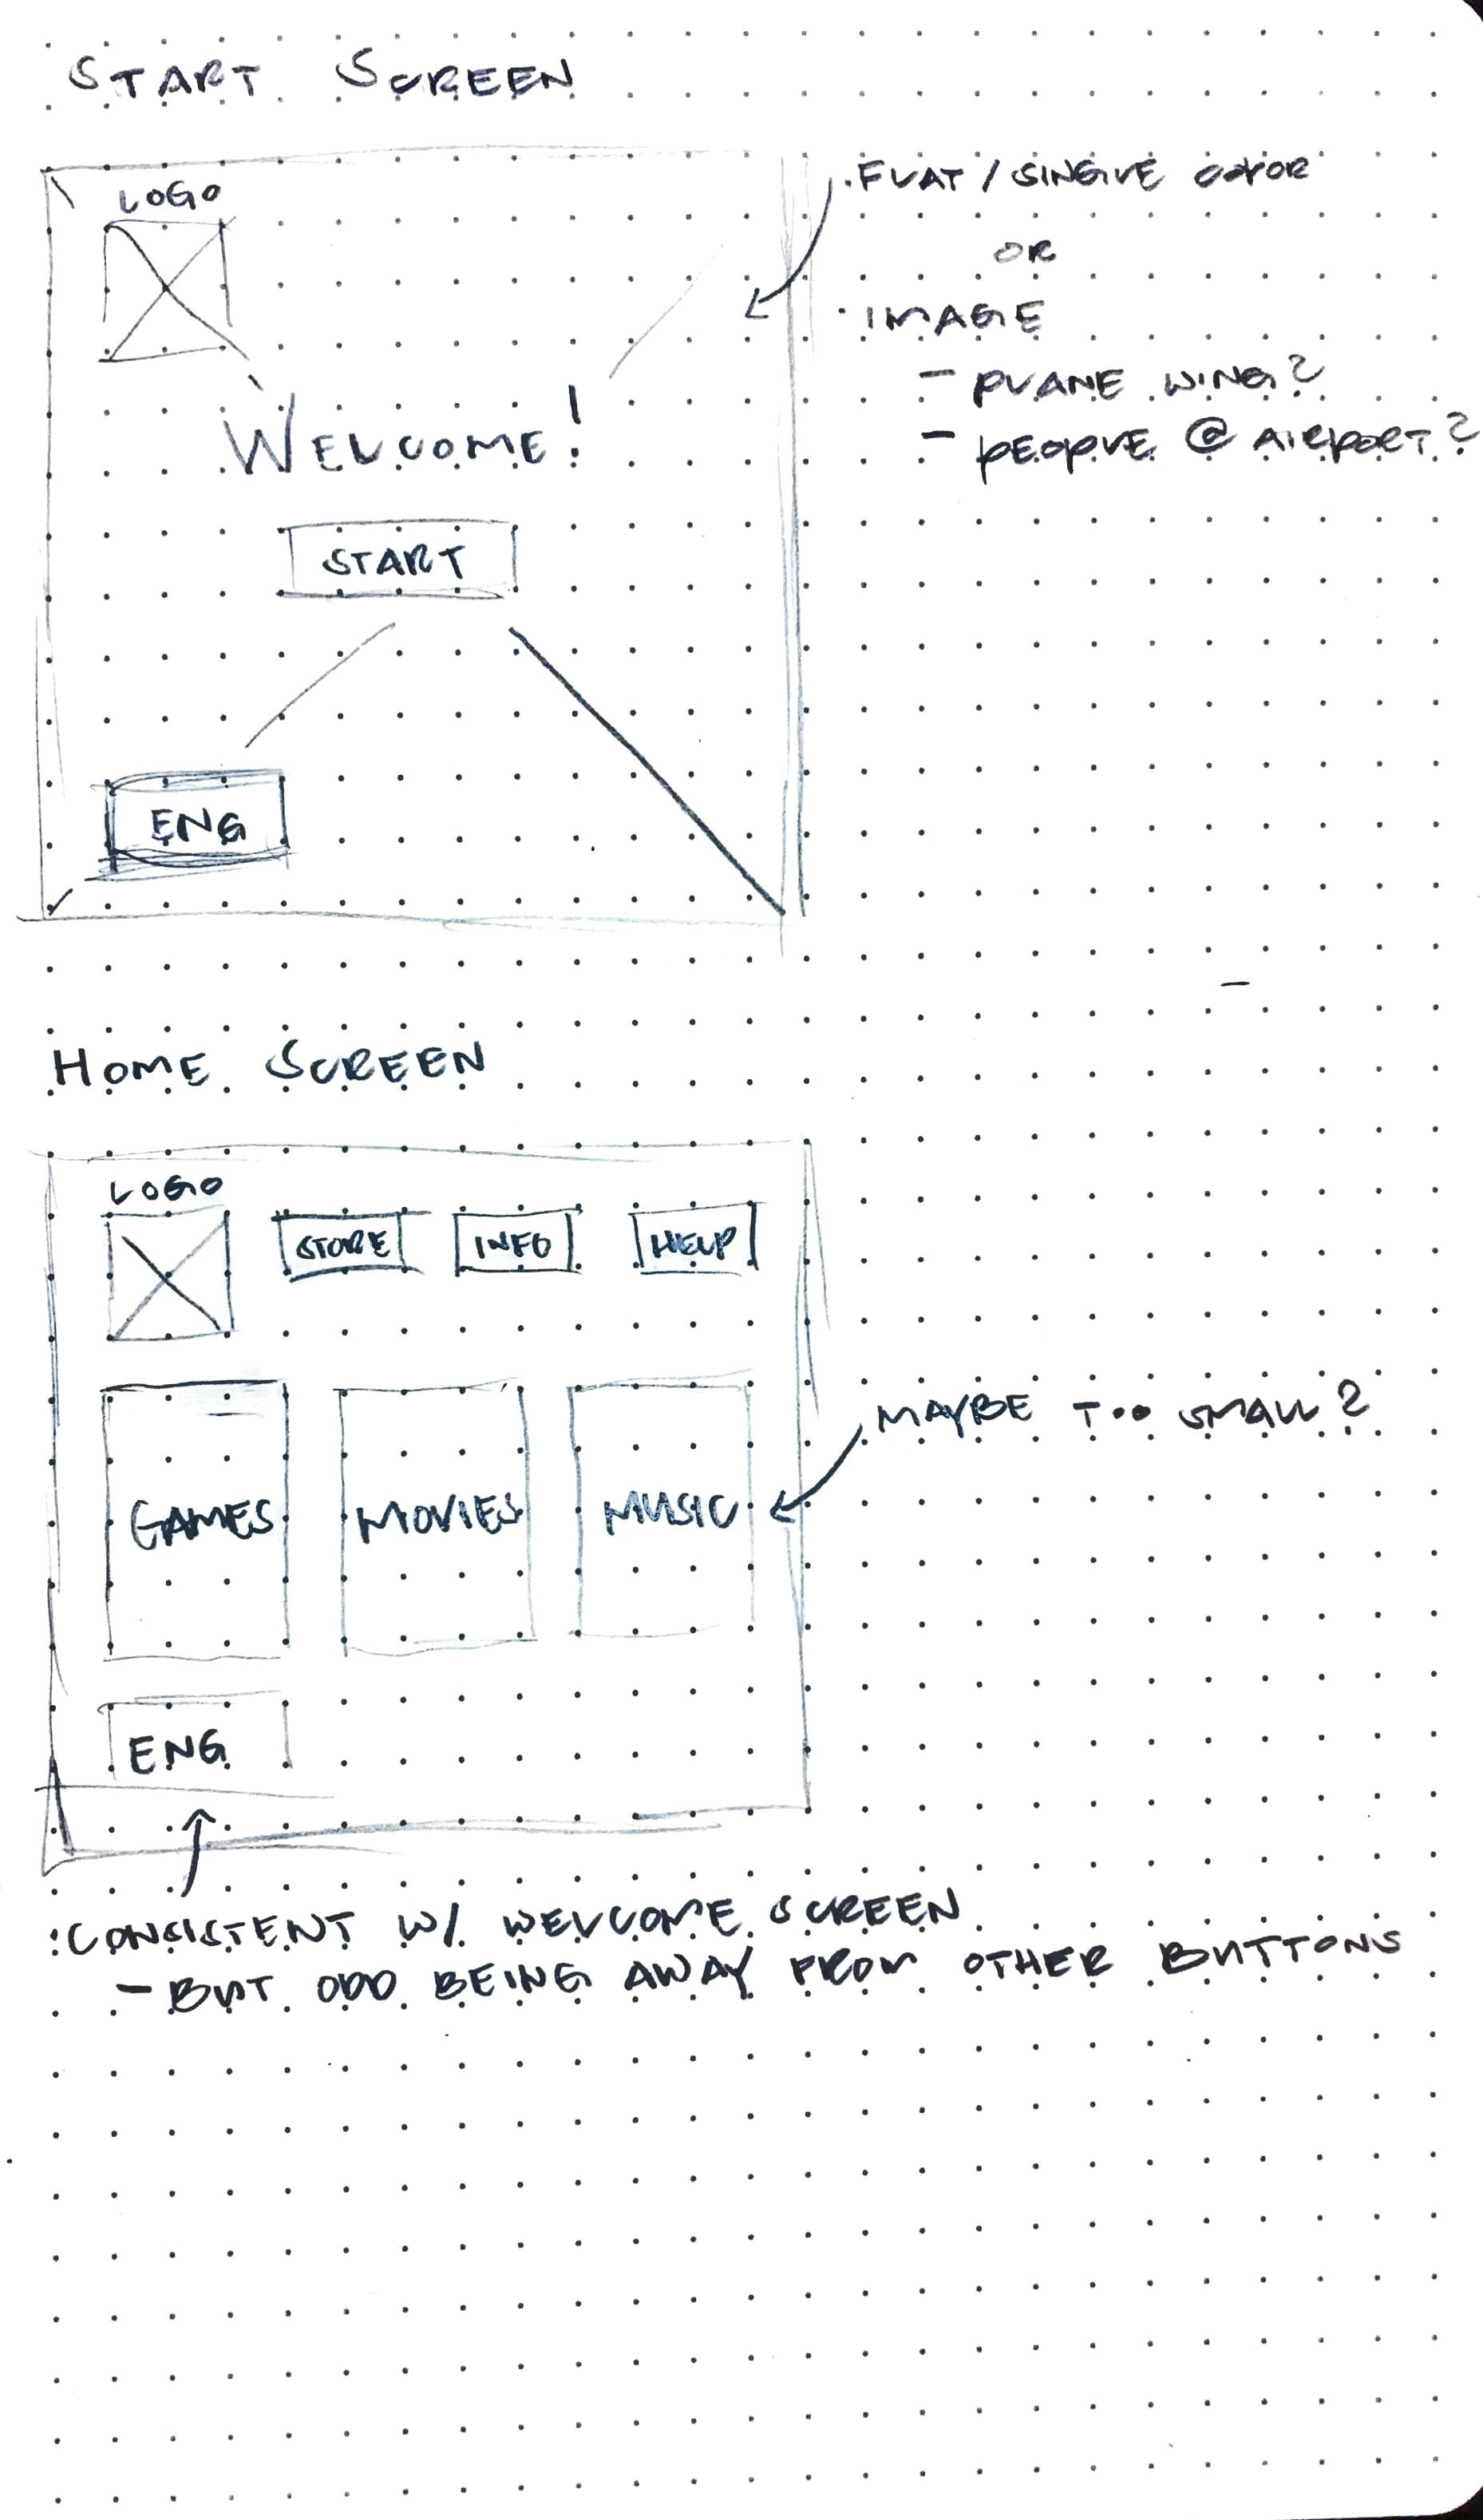 START SCREEN
LOGO
· FLAT / SINGLE COLOR
OR
· IMAGE
- PLANE WING?
- PEOPLE @ AIRPORT?
WELCOME!
START
ENG
HOME SCREEN
LOGO
STORE INFO HELP
MAYBE TOO SMALL?
GAMES MOVIES MUSIC
ENG
· CONSISTENT W/ WELCOME SCREEN
- BUT ODD BEING AWAY FROM OTHER BUTTONS